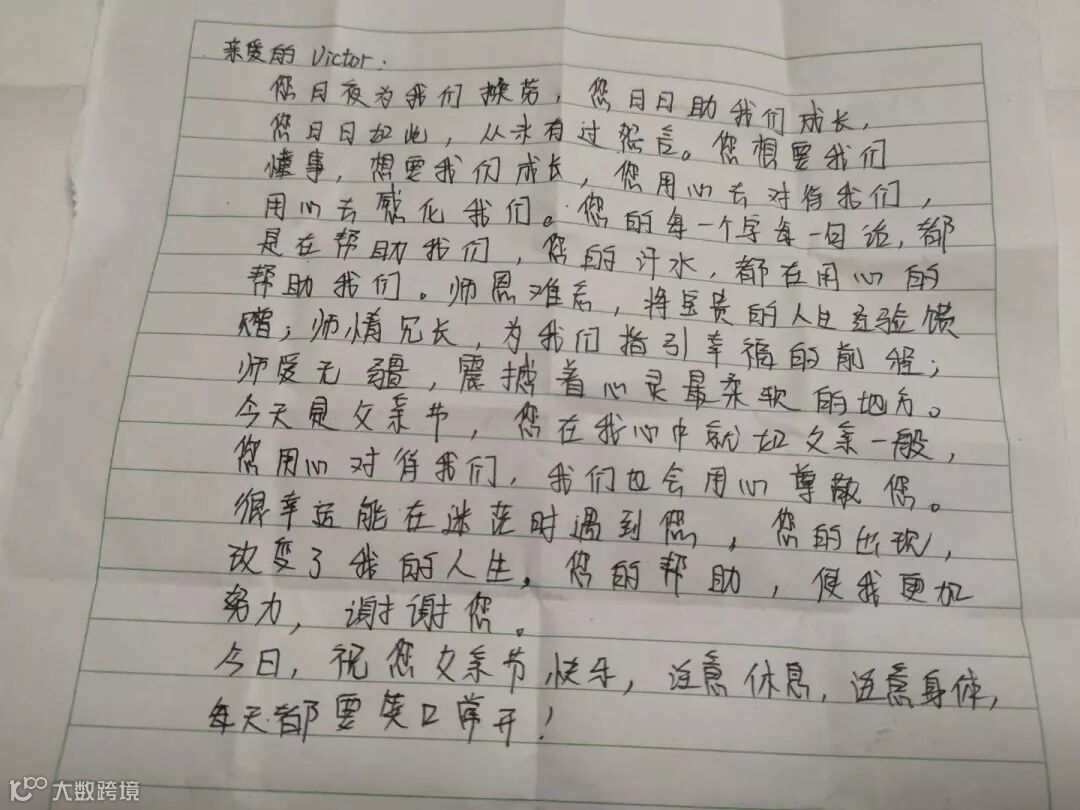 亲爱的 Victor:
您日夜为我们操劳，您日日助我们成长，
您日日如此，从未有过怨言。您想要我们
懂事，想要我们成长，您用心去对待我们，
用心去感化我们。您的每一个字每一句话，都
是在帮助我们，您的汗水，都在用心的
帮助我们。师恩难忘，将宝贵的人生经验馈
赠；师情冗长，为我们指引幸福的前程；
师爱无疆，震撼着心灵最柔软的地方。
今天是父亲节，您在我心中就如父亲一般，
您用心对待我们，我们也会用心尊敬您。
很幸运能在迷茫时遇到您，您的出现，
改变了我的人生，您的帮助，使我更加
努力，谢谢您。
今日，祝您父亲节快乐，注意休息，注意身体，
每天都要笑口常开！
大数跨境